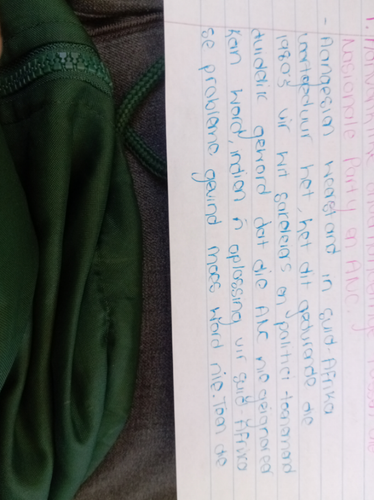 Nasionale Party en ANC
- Aangesien weerstand in Suid-Afrika
voortgeduur het, het dit gedurende die
1980's vir wit sakeleiers en politici toenemend
duidelik geword dat die ANC nie geïgnoreer
kan word, indien 'n oplossing vir Suid-Afrika
se probleme gevind moes word nie. Toe die